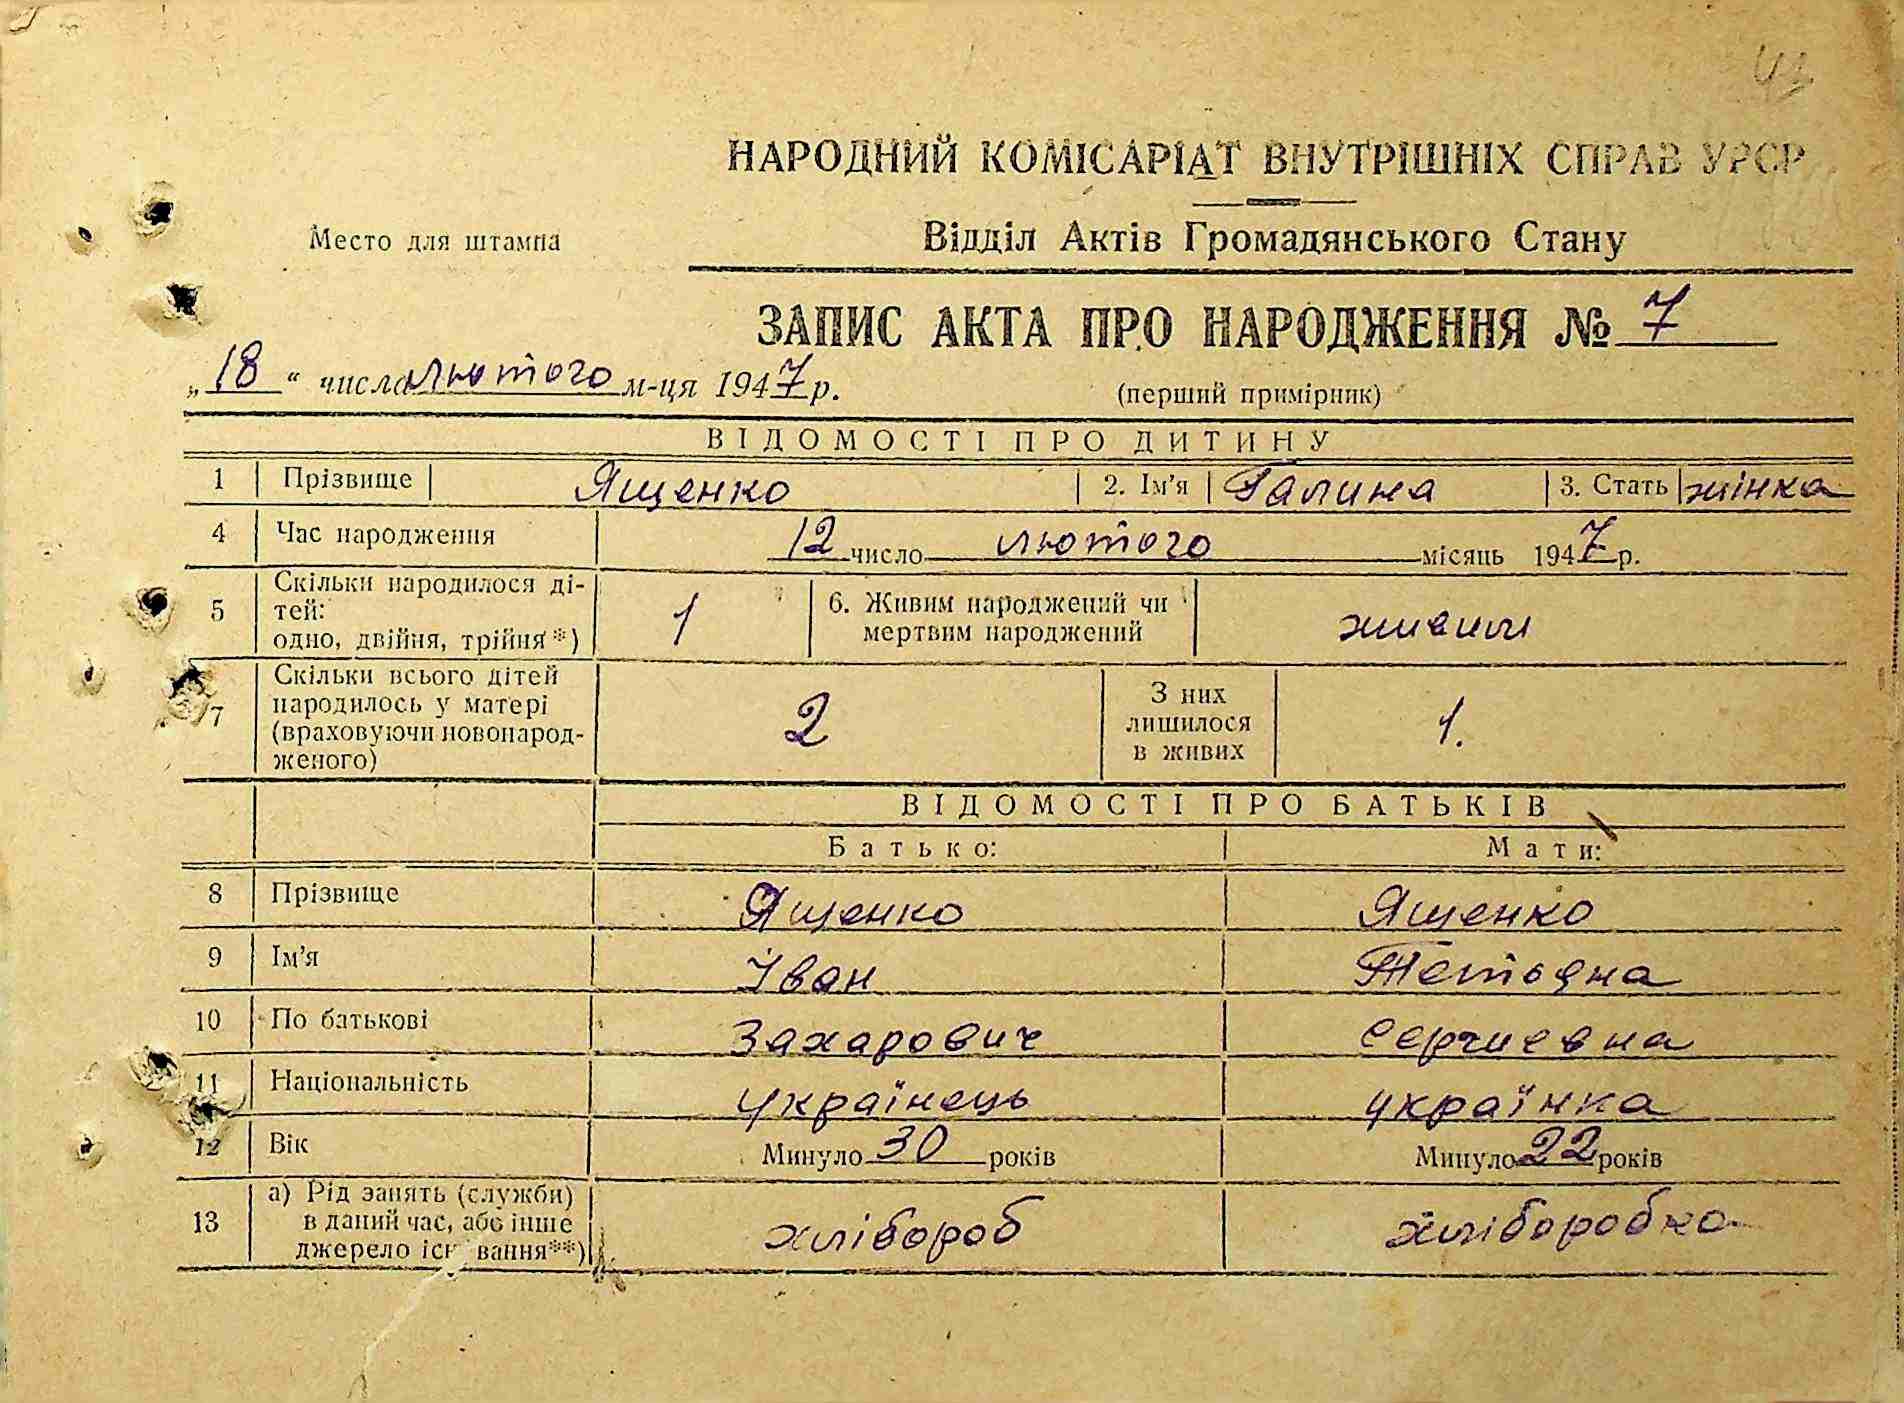 43
НАРОДНИЙ КОМІСАРІАТ ВНУТРІШНІХ СПРАВ УРСР
Место для штампа
Відділ Актів Громадянського Стану
ЗАПИС АКТА ПРО НАРОДЖЕННЯ № 7
„18“ числа лютого м-ця 1947 р.
(перший примірник)
ВІДОМОСТІ ПРО ДИТИНУ
1 Прізвище Ященко 2. Ім’я Галина 3. Стать жінка
4 Час народження 12 число лютого місяць 1947 р.
5 Скільки народилося ді-
тей:
одно, двійня, трійня*) 1 6. Живим народжений чи
мертвим народжений живим
7 Скільки всього дітей
народилось у матері
(враховуючи новонарод-
женого) 2 З них
лишилося
в живих 1.
ВІДОМОСТІ ПРО БАТЬКІВ
Батько: Мати:
8 Прізвище Ященко Ященко
9 Ім’я Іван Тетьяна
10 По батькові Захарович Сергиевна
11 Національність українець українка
12 Вік Минуло 30 років Минуло 22 років
13 а) Рід занять (служби)
в даний час, або інше
джерело існ вання**) хлібороб хліборобка